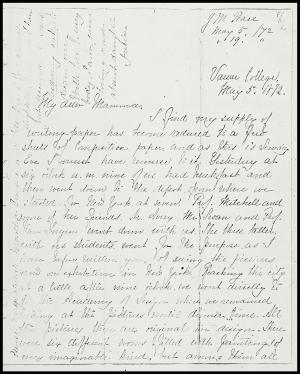 May 5, '72
" 19. "
Vassar College,
May 5. 1872.
My dear Mamma.
I find my supply of
writing paper has become reduced to a few
sheets of composition paper, and as this is Sunday
Eve I must have recourse to it. Yesterday at
six o'clock a.m. nine of us had breakfast and
then went down to the depot from where we
started for New York at seven. Prof. Mitchell and
some of her friends, Dr. Avery, Mr. Swan and Prof.
Van Ingen went down with us. The three latter
with his students went for the purpose as I
have before written you of seeing the pictures
now on exhibition in New York. Reaching the city
at a little after nine o'clock, we went directly to
the Academy of Design where we remained
looking at the pictures until dinner time. All
the pictures there are original in design. There
were six different rooms filled with paintings of
every imaginable kind, but among them all